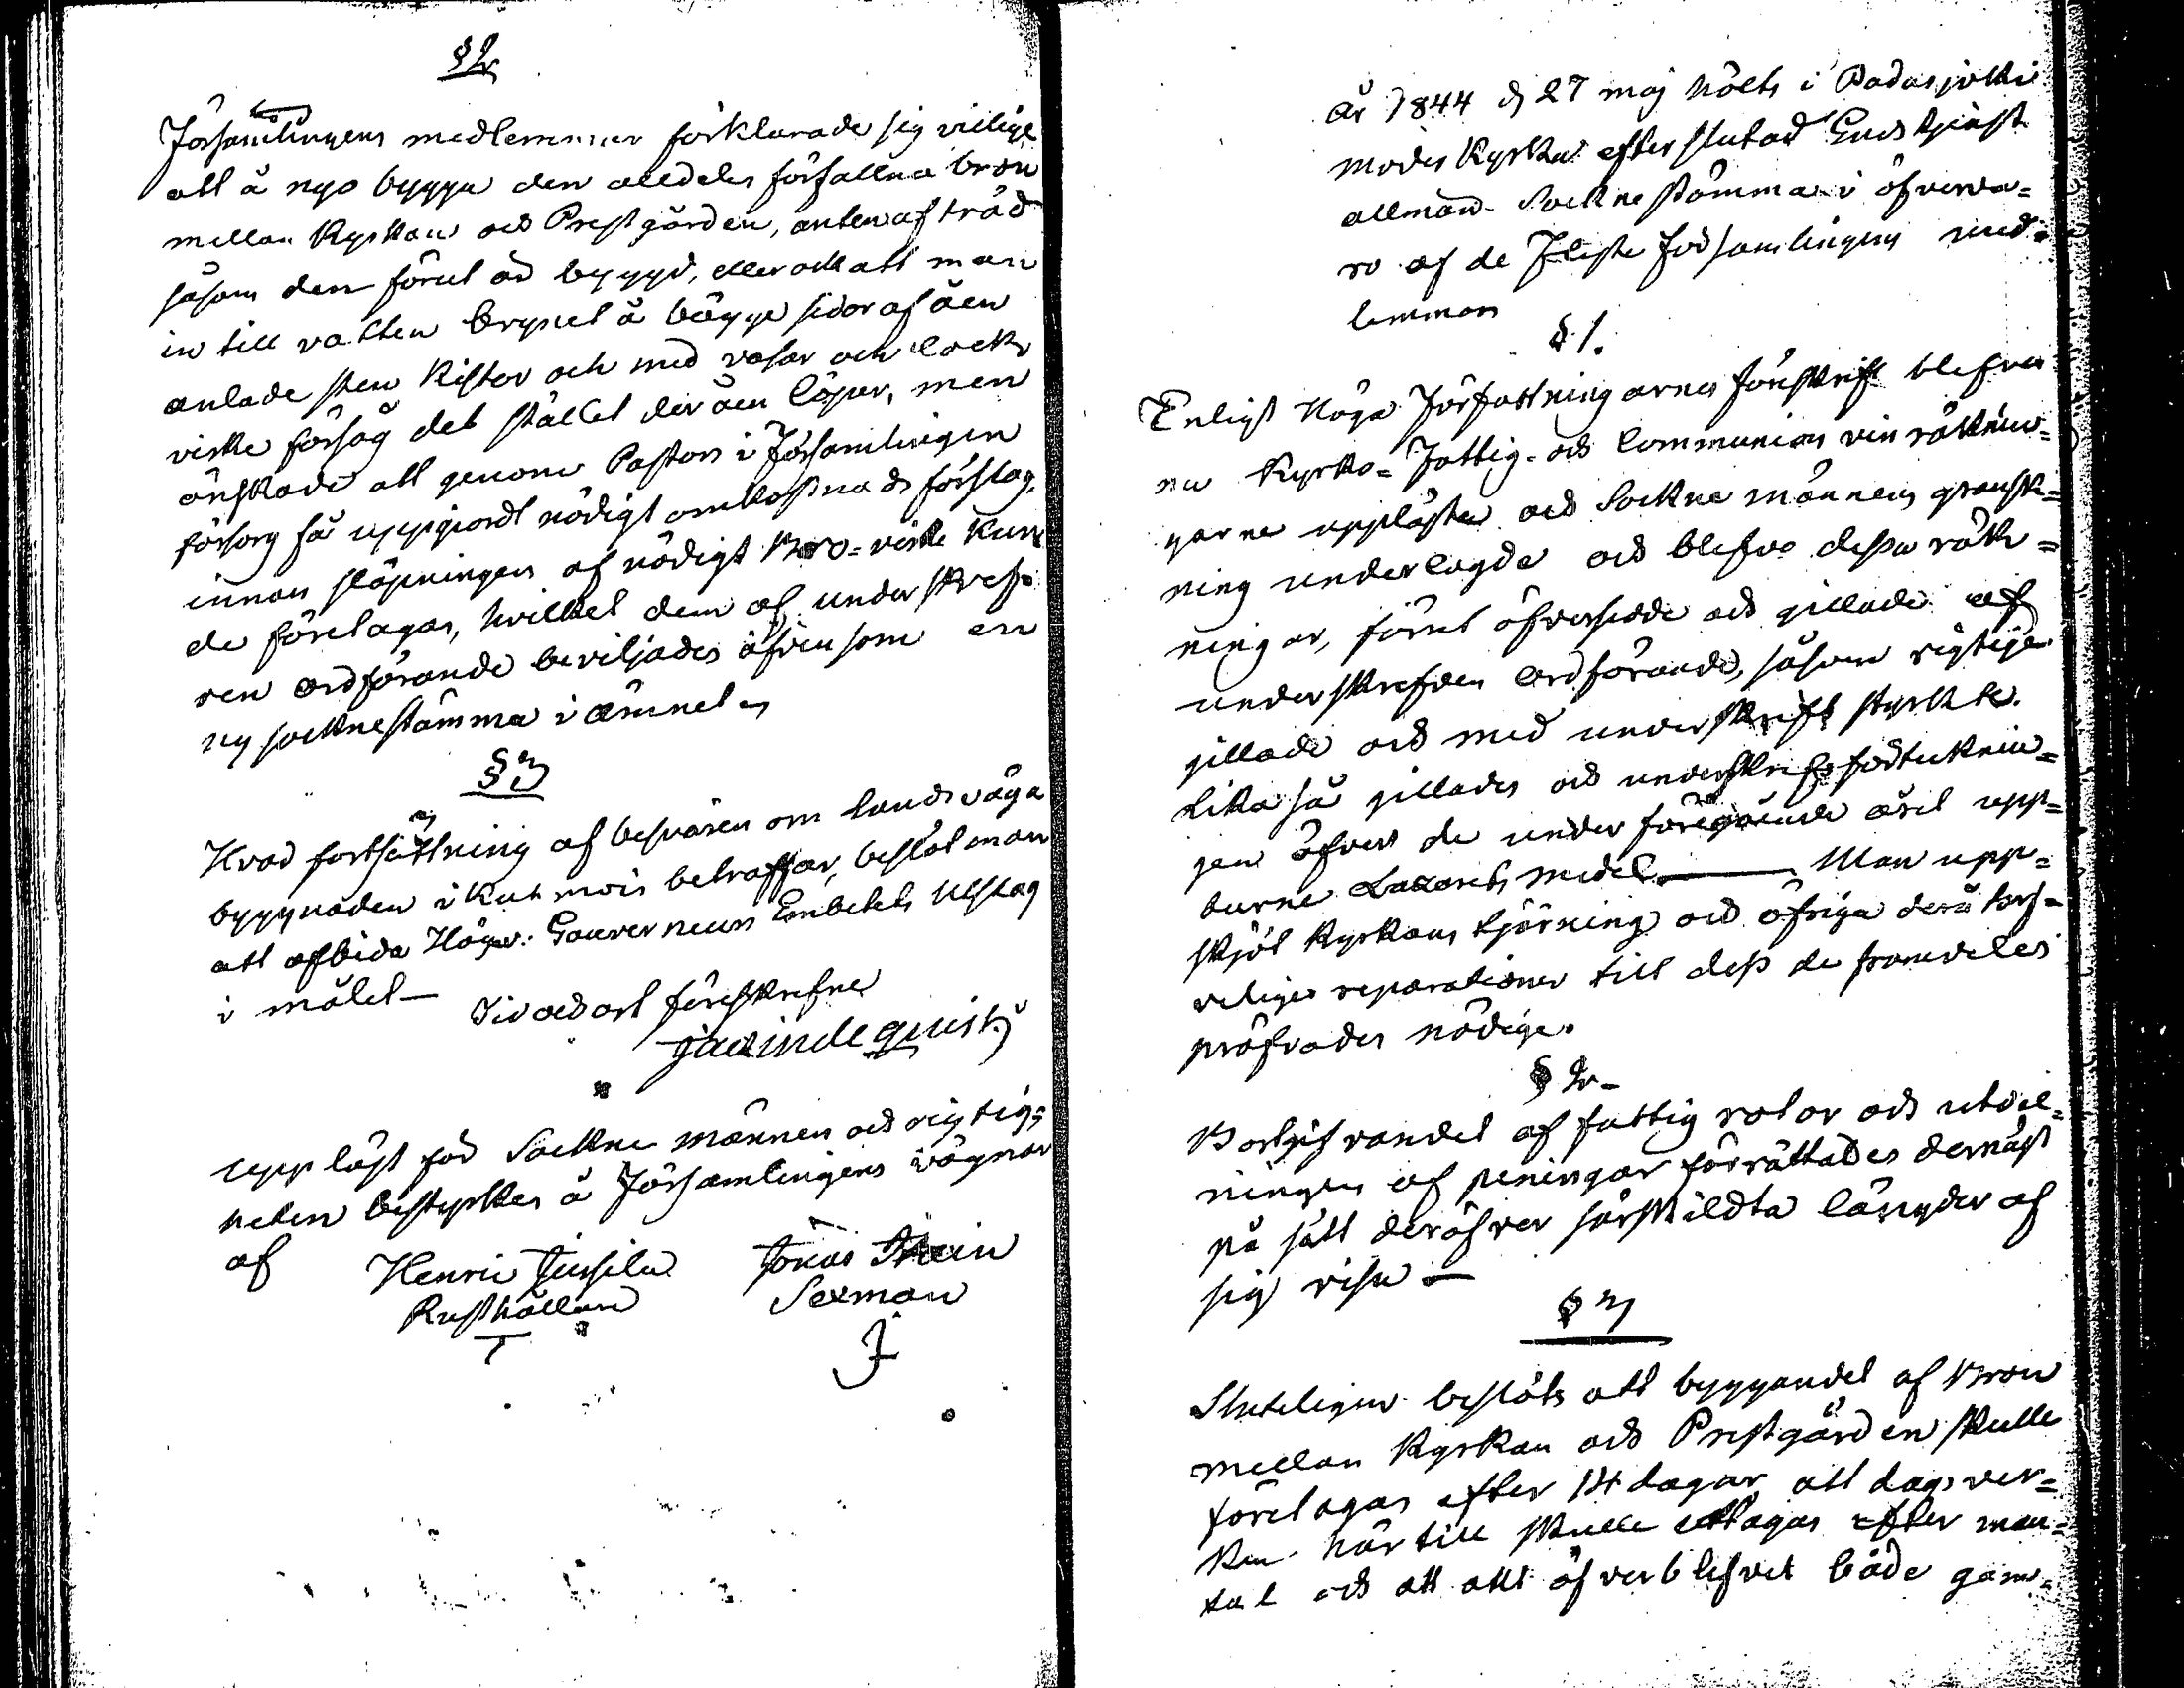 § 2
Församlingens medlemmar förklarade sig villige
att å nyo bygga den alldeles förfallna bron
mellan Kyrkan och Prestgården, anten af träd
såsom den förut är byggd, eller ock att man
in till vatten brynet å bägge sidor af åen
anlade sten Kistor och med vasar och
virke försåg det stället der åen löper, men
önskade att genom Pastors i Församlingen
försorg få uppgjordt nödigt omkostnads förslag,
innan släpningen af nödigt Bro-virke kun
de företagas, hvilket dem af underskref-
ven ordförande beviljades äfvensom en
ny sockne stämma i ämnet
§ 3
Hvad fortsättning af besvären om landsväga
byggnaden i Kuhmois beträffar, beslöt man
att afbida Högv. Gouverneurs Embetets utslag
i målet— Tid och ort föreskrefne
Upp läst för Sockne männen och rigtig-
heten bestyrkes å Församlingens vägnar
af Henric Jussila Jonas
Rusthållare Sexman
År 1844 d. 27 maj hölts i Padasjoki
moder Kyrka efter slutad Gudstjenst
allmän Sockne stämma i öfverva-
ro af de fleste församlingens med-
lemmar
§ 1.
Enligt Höga Författningarnes föreskrift blefvo
nu Kyrko- Fattig- och Communion vin räknin-
garne uppläste och Sockne männens gransk-
ning underlagde och blefvo dessa räk-
ningar, förut öfversedde och gillade af
underskrefven ordförande, såsom rigtige
gillade och med underskrift styrkte.
Lika så gillades och underskrefs förteknin-
gen öfver de under föregående året upp-
burne Lazarets medel — Man upp-
sköt Kyrkans tjörning och öfriga derå behöf-
velige reparationer till dess de framdeles
pröfvades nödige.
§ 2
Bortgifvandet af fattig rotar och utdel-
ningen af peningar förrättades dernäst
på sätt deröfver särskildta längder af
sig visa —
§ 3
Sluteligen beslöts att byggandet af Bron
mellan Kyrkan och Prestgården skulle
företagas efter 14 dagar att dagsver-
ken här till skulle uttagas efter man-
tal och att allt öfverblefvet både gam-